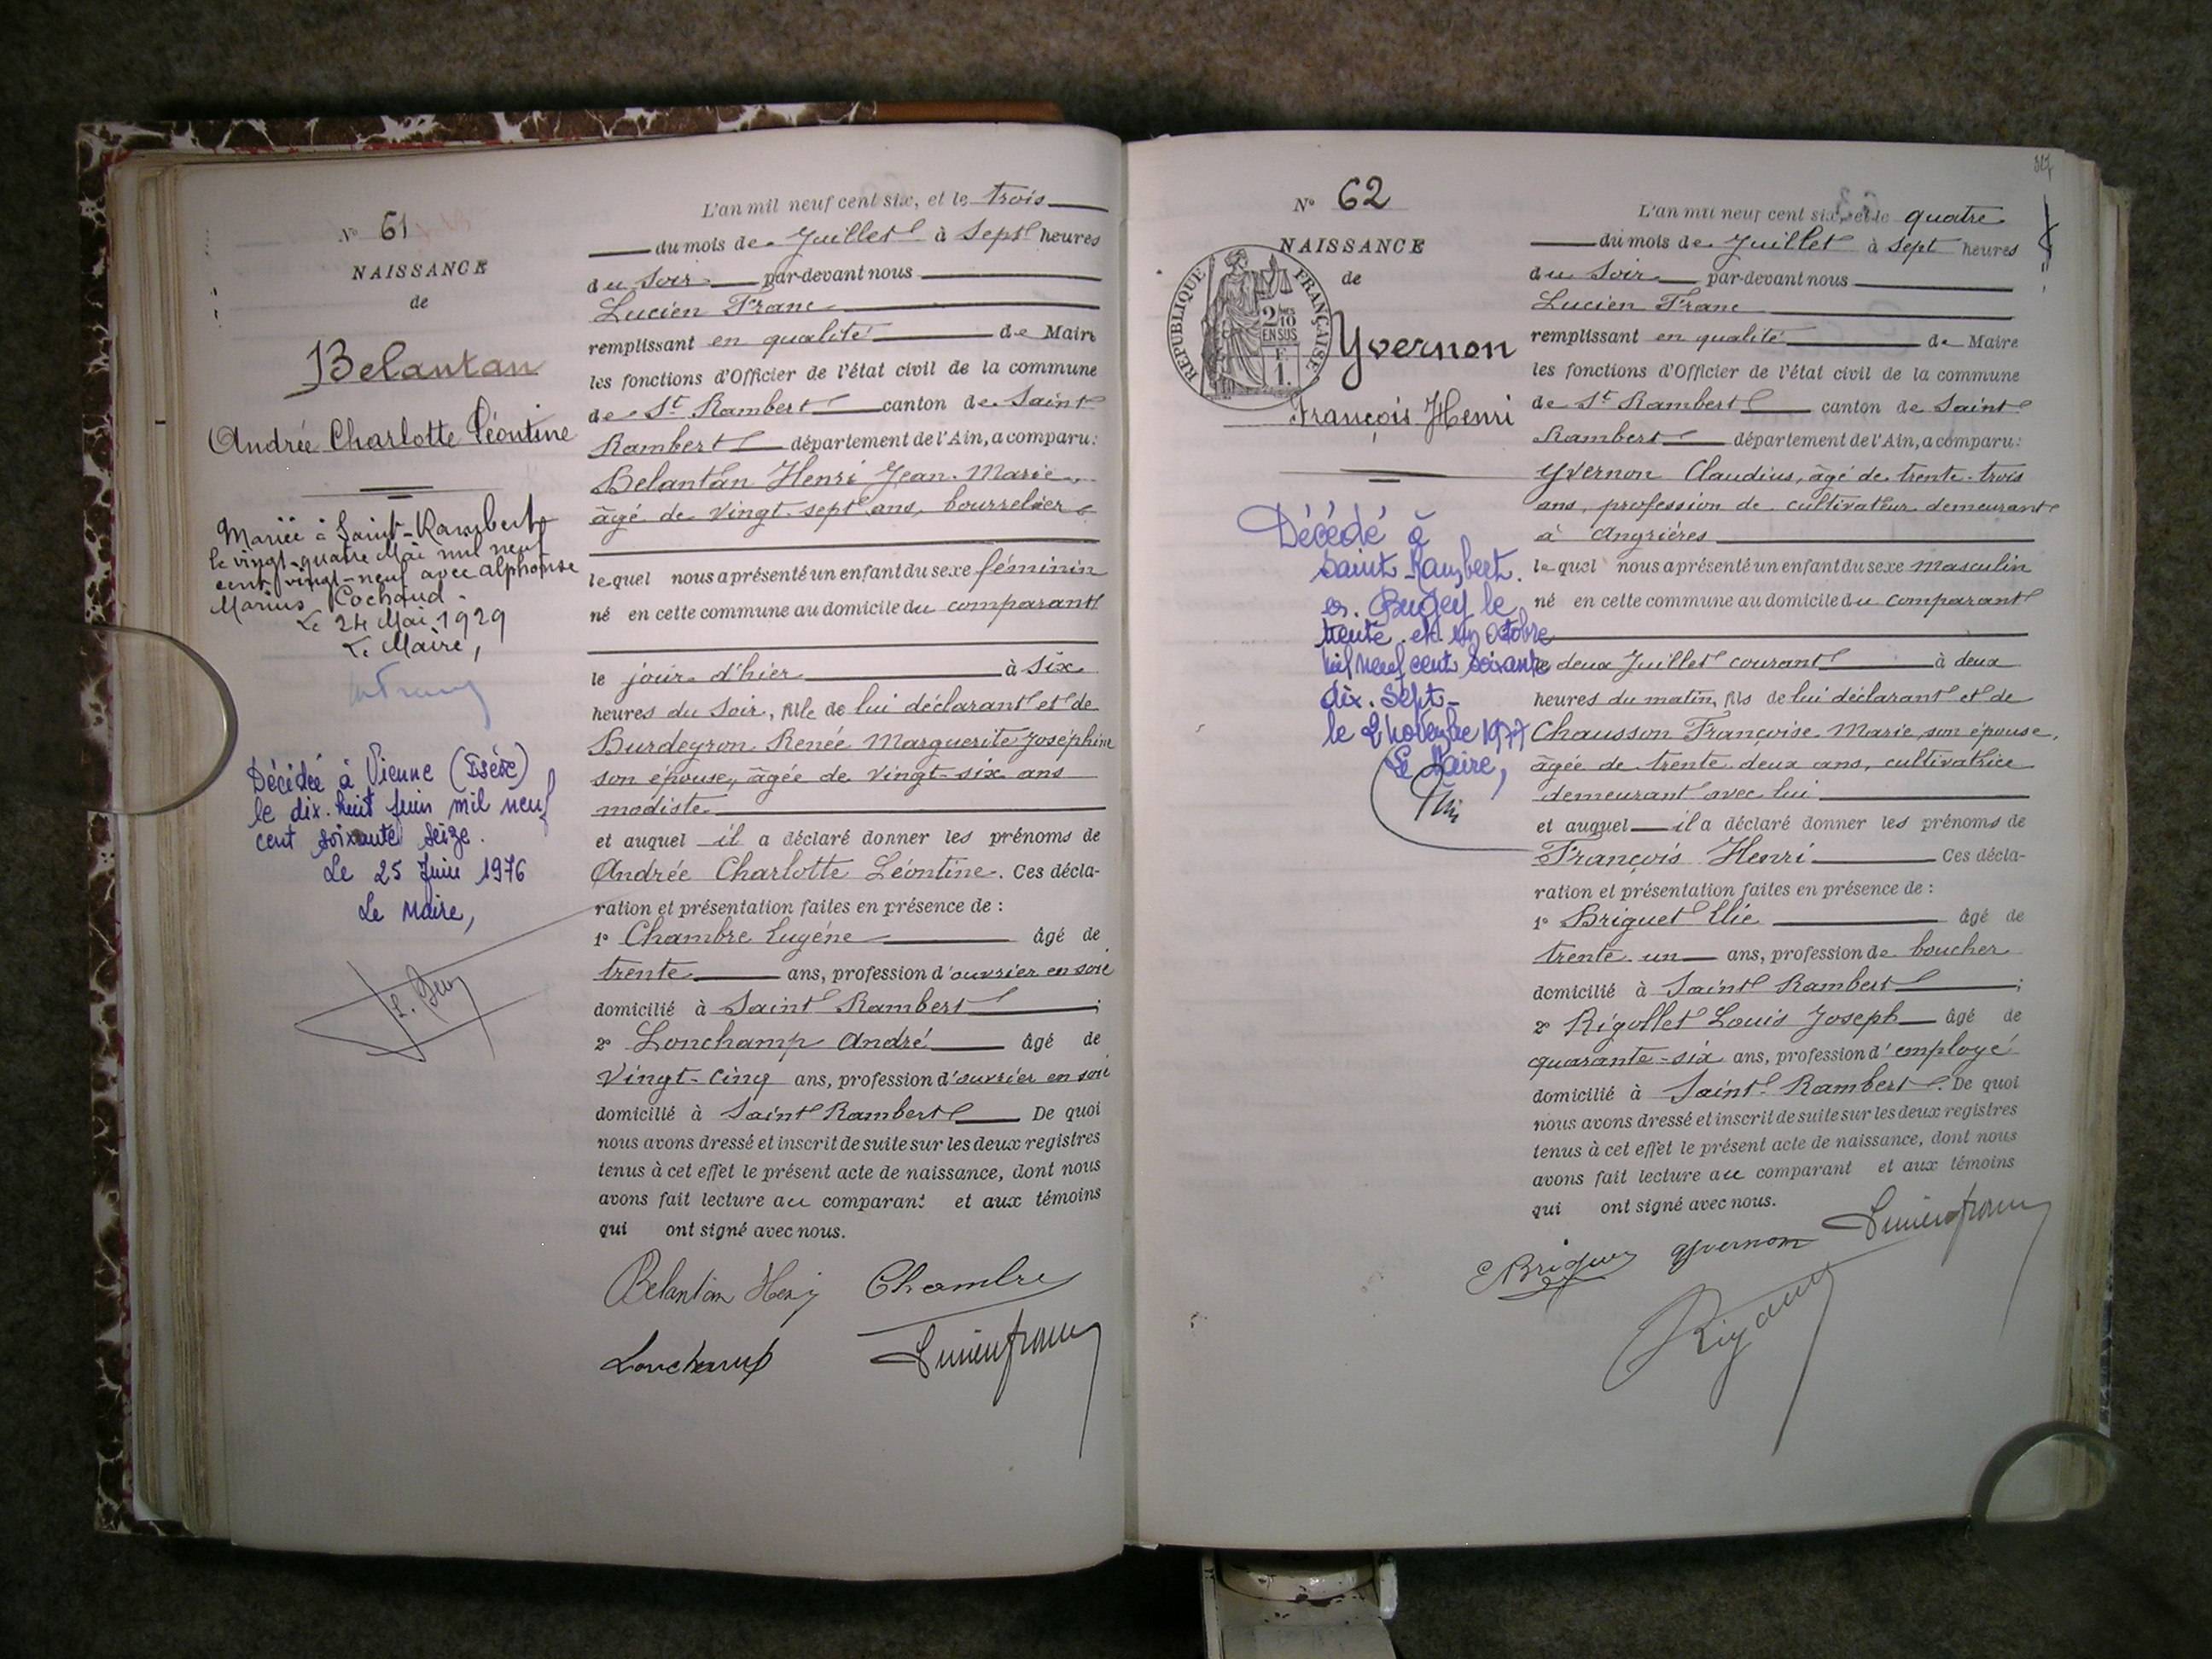 N° 61
NAISSANCE
de
Belantan
Andrée Charlotte Léontine
Mariée à Saint-Rambert
le vingt-quatre Mai mil neuf
cent vingt-neuf avec Alphonse
Marius Cochaud.
Le 24 Mai 1929
Le Maire,
Décédée à Vienne (Isère)
le dix-huit juin mil neuf
cent soixante seize.
Le 25 Juin 1976
Le Maire,
L'an mil neuf cent six, et le trois
du mois de Juillet à Sept heures
du Soir par-devant nous
Lucien Franc
remplissant en qualité de Maire
les fonctions d'Officier de l'état civil de la commune
de St Rambert canton de Saint
Rambert département de l'Ain, a comparu:
Belantan Henri Jean-Marie,
âgé de vingt-sept ans, bourrelier
lequel nous a présenté un enfant du sexe féminin
né en cette commune au domicile du comparant
le jour d'hier à six
heures du soir, fille de lui déclarant et de
Burdeyron Renée Marguerite Joséphine
son épouse, âgée de vingt-six ans
modiste
et auquel il a déclaré donner les prénoms de
Andrée Charlotte Léontine. Ces décla-
ration et présentation faites en présence de :
1° Chambre Eugène âgé de
trente ans, profession d'ouvrier en soie
domicilié à Saint Rambert ;
2° Lonchamp André âgé de
vingt-cinq ans, profession d'ouvrier en soie
domicilié à Saint Rambert De quoi
nous avons dressé et inscrit de suite sur les deux registres
tenus à cet effet le présent acte de naissance, dont nous
avons fait lecture au comparant et aux témoins
qui ont signé avec nous.
Belantan Henry Chambre
Lonchamp Lucien Franc
N° 62
NAISSANCE
de
RÉPUBLIQUE FRANÇAISE
2/10
EN SUS
F.
1.
Yvernon
François Henri
Décédé à
Saint-Rambert.
en-Bugey le
trente et un Octobre
mil neuf cent soixante
dix-sept-
le 2 novembre 1977
Le Maire,
L'an mil neuf cent six, et le quatre
du mois de Juillet à sept heures
du Soir par-devant nous
Lucien Franc
remplissant en qualité de Maire
les fonctions d'Officier de l'état civil de la commune
de St Rambert canton de Saint
Rambert département de l'Ain, a comparu:
Yvernon Claudius, âgé de trente-trois
ans, profession de cultivateur demeurant
à Angrières
lequel nous a présenté un enfant du sexe masculin
né en cette commune au domicile du comparant
le deux Juillet courant à deux
heures du matin, fils de lui déclarant et de
Chausson Françoise Marie, son épouse,
âgée de trente deux ans, cultivatrice
demeurant avec lui
et auquel il a déclaré donner les prénoms de
François Henri Ces décla-
ration et présentation faites en présence de :
1° Briguet Elie âgé de
trente-un ans, profession de boucher
domicilié à Saint Rambert ;
2° Rigollet Louis Joseph âgé de
quarante-six ans, profession d'employé
domicilié à Saint-Rambert. De quoi
nous avons dressé et inscrit de suite sur les deux registres
tenus à cet effet le présent acte de naissance, dont nous
avons fait lecture au comparant et aux témoins
qui ont signé avec nous.
E Briguet Yvernon Lucien Franc